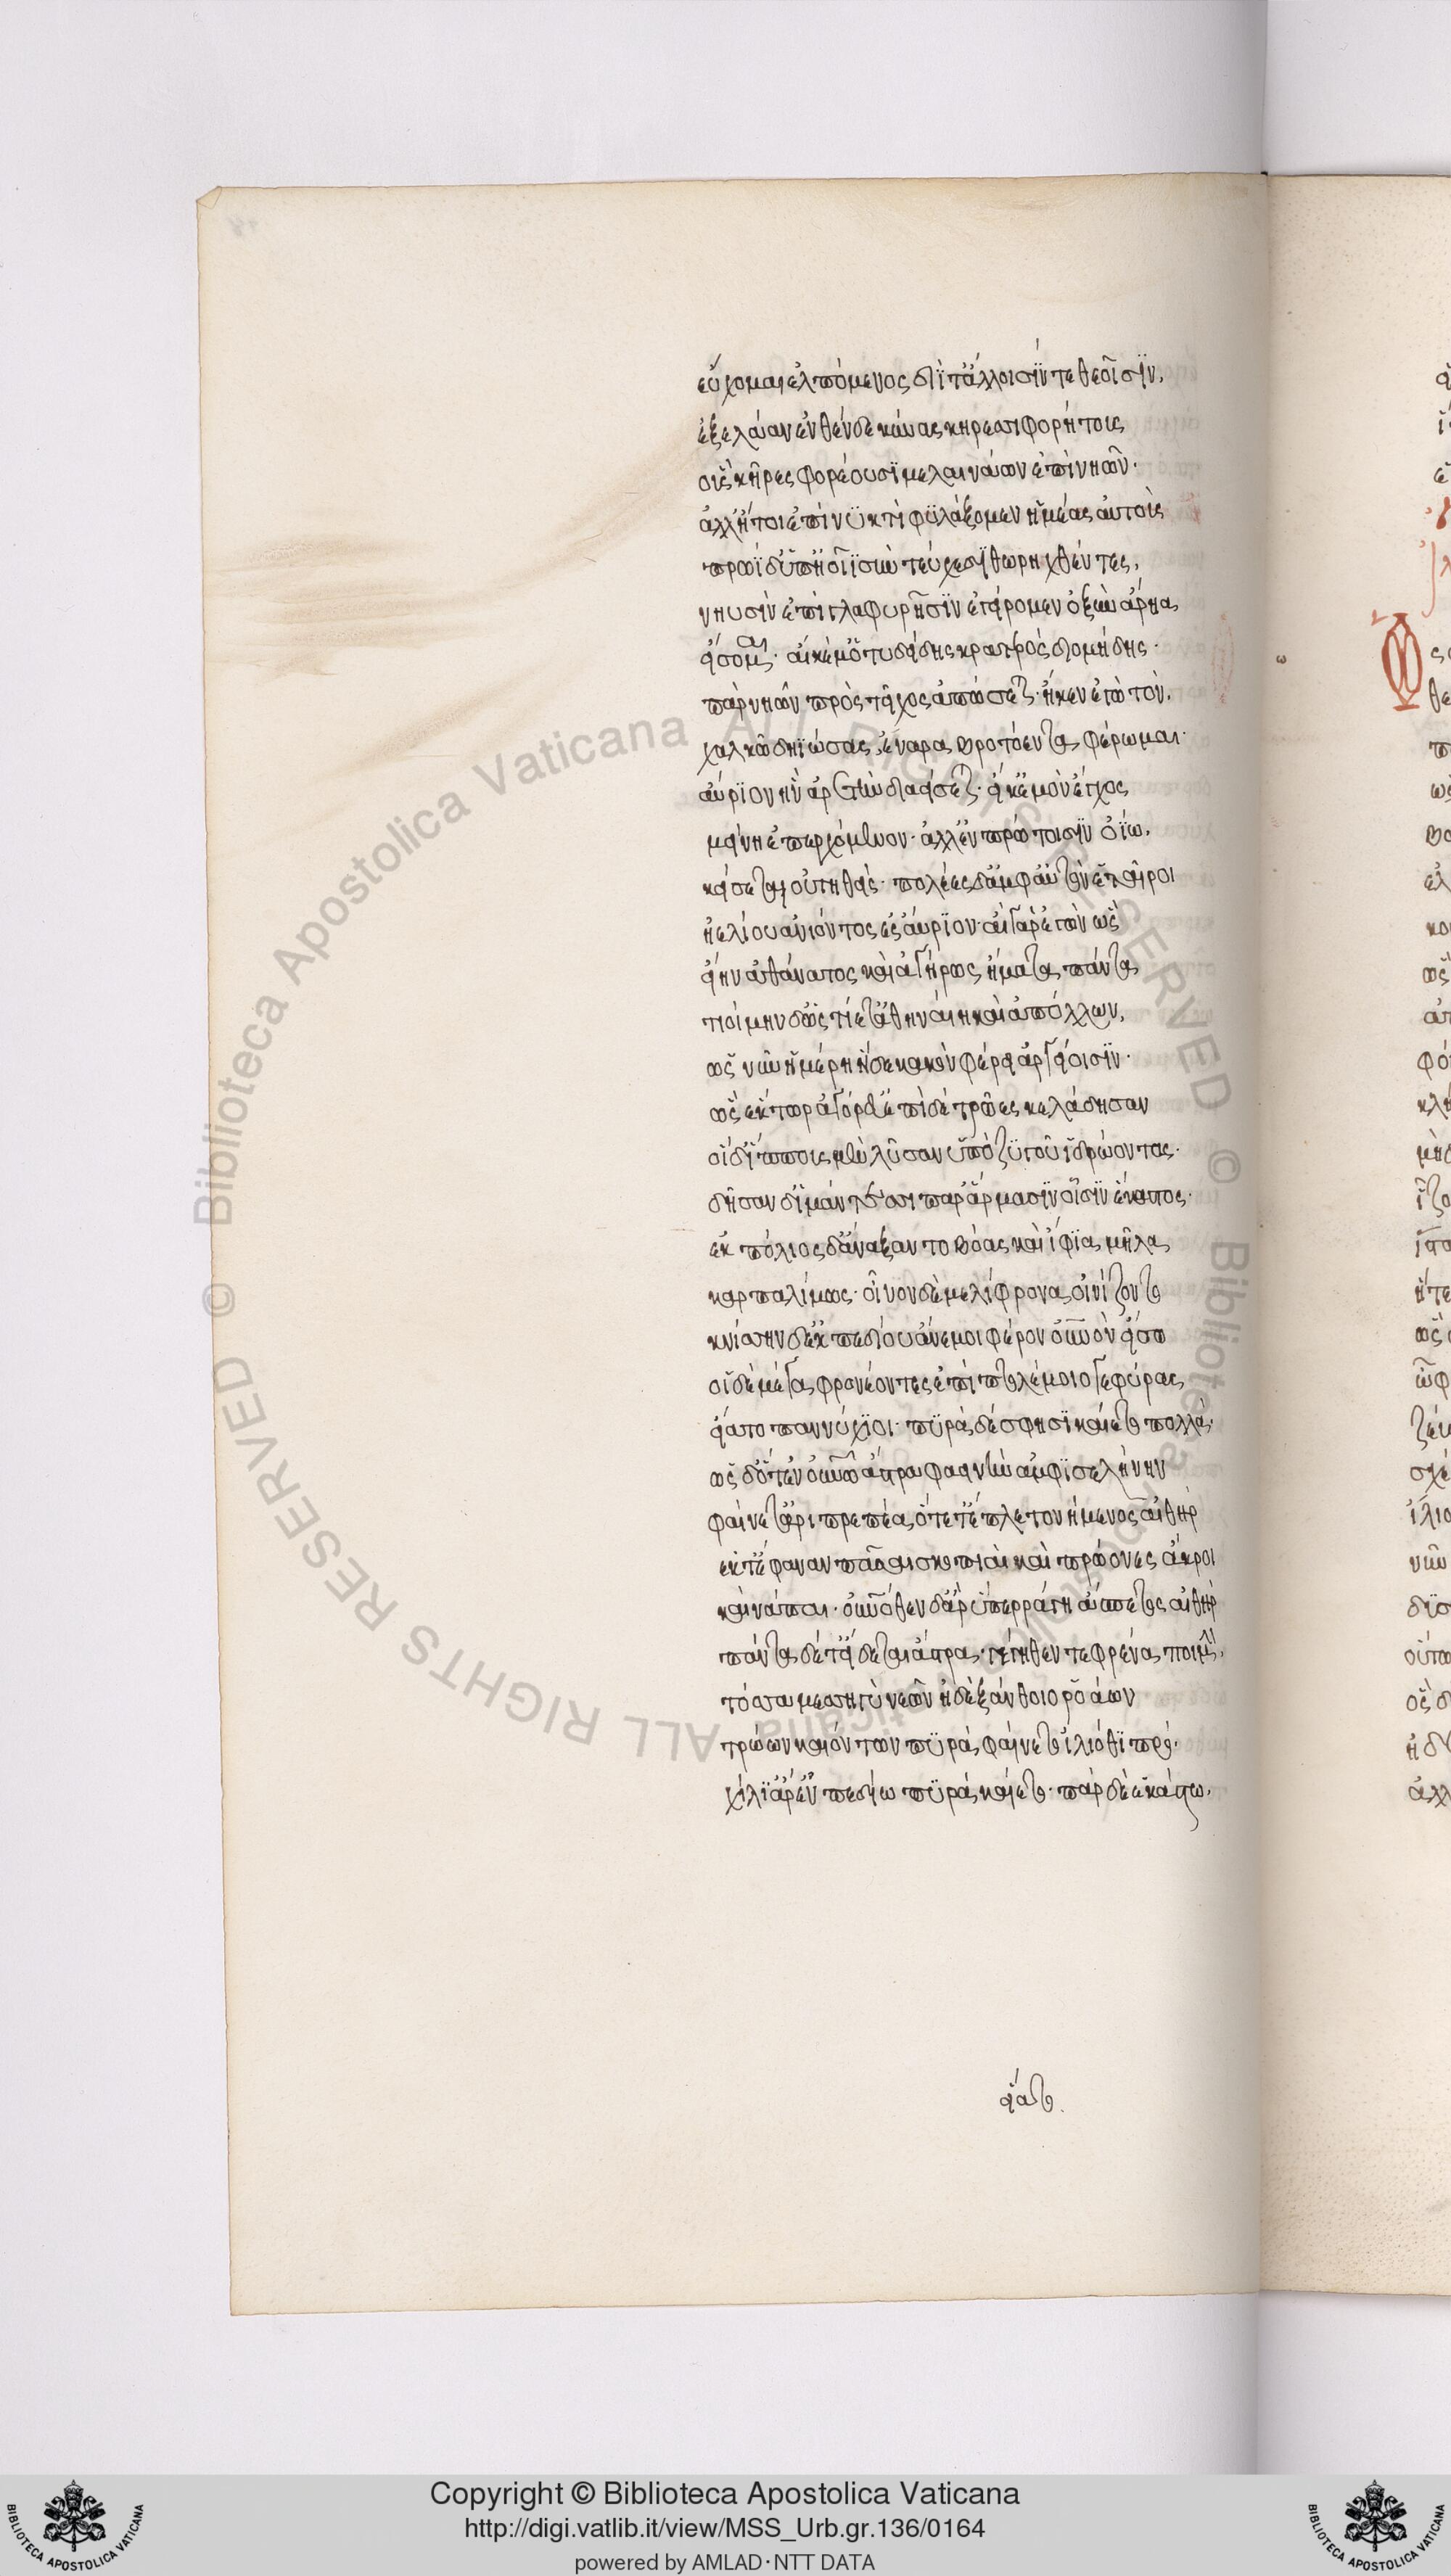 εὔχομαι ἐλπόμενος διΐ τ' ἄλλοισίν τε θεοῖσϊν,
ἐξελάαν ἐνθένδε κύνας κηρεσσιφορήτοις
οὓς κῆρες φορέουσϊ μελαινάων ἐπὶ νηῶν·
ἀλλ' ἤτοι ἐπὶ νϋκτὶ φϋλάξομεν ἡμέας αὐτοὺς
πρωῒ δ' ὑπηοῖϊ σὺν τεύχεσϊ θωρηχθέντες,
νηυσὶν ἐπὶ γλαφυρῇσϊν ἐγείρομεν ὀξὺν ἄρηα
εἴσομαι· αἴ κέ μ' ὁ τυδείδης κρατερὸς διομήδης·
πὰρ νηῶν πρὸς τεῖχος ἀπώσεται· ἤ κεν ἐγὼ τὸν,
χαλκῷ δηϊώσας, ἔναρα βροτόεντα φέρωμαι·
αὔρϊον ἣν ἀρετὴν διαείσεται· εἴ κ' ἐμὸν ἔγχος
μείνη ἐπερχόμενον· ἀλλ' ἐν πρώτοισϊν ὀΐω,
κείσεται οὐτηθείς· πολέες δ' ἀμφ' αὐτὸν ἑταῖροι
ἠελίου ἀνιόντος ἐς αὔρϊον· αἲ γὰρ ἐγὼν ὣς
εἴην ἀθάνατος καὶ ἀγήρως ἤματα πάντα
τιοίμην δ' ὡς τίετ' ἀθηναίη καὶ ἀπόλλων,
ὡς νῦν ἡμέρη ἥδε κακὸν φέρει ἀργείοισϊν·
ὣς ἕκτωρ ἀγόρευ' ἐπὶ δὲ τρῶες κελάδησαν
οἱ δ' ἵππους μὲν λῦσαν ὑπὸ ζϋγοῦ ἱδρώοντας·
δῆσαν δ' ἱμάντεσσι παρ' ἅρμασϊν οἷσϊν ἕκαστος·
ἐκ πόλιος δ' ἄναξαντο βόας καὶ ἴφϊα μῆλα
καρπαλίμως· οἶνον δὲ μελίφρονα οἰνίζοντο
κνίσσην δ' ἐκ πεδίου ἄνεμοι φέρον οὐρανὸν εἴσω
οἱ δὲ μέγα φρονέοντες ἐπὶ πτολέμοιο γεφύρας
εἵατο παννύχϊοι· πϋρὰ δέ σφησϊ καίετο πολλά·
ὡς δ' ὅτ' ἐν οὐρανῷ ἄστρα φαεινὴν ἀμφϊ σελήνην
φαίνετ' ἀριπρεπέα, ὅτε τ' ἔπλετο νήνεμος αἰθὴρ
ἔκ τ' ἔφαναν πᾶσαι σκοπιαὶ καὶ πρώονες ἄκροι
καὶ νάπαι· οὐρανόθεν δ' ἄρ' ὑπερράγη ἄσπετος αἰθὴρ
πάντα δέ τ' εἴδεται ἄστρα· γέγηθεν τε φρένα ποιμήν·
τόσσα μεσηγὺ νεῶν ἠδὲ ξάνθοιο ῥοάων
τρώων καιόντων πϋρὰ φαίνετο ἰλιόθϊ πρό·
χίλϊ' ἄρ' ἐν πεδίω πϋρὰ καίετο· πὰρ δὲ ἑκάστω,
εἵατο